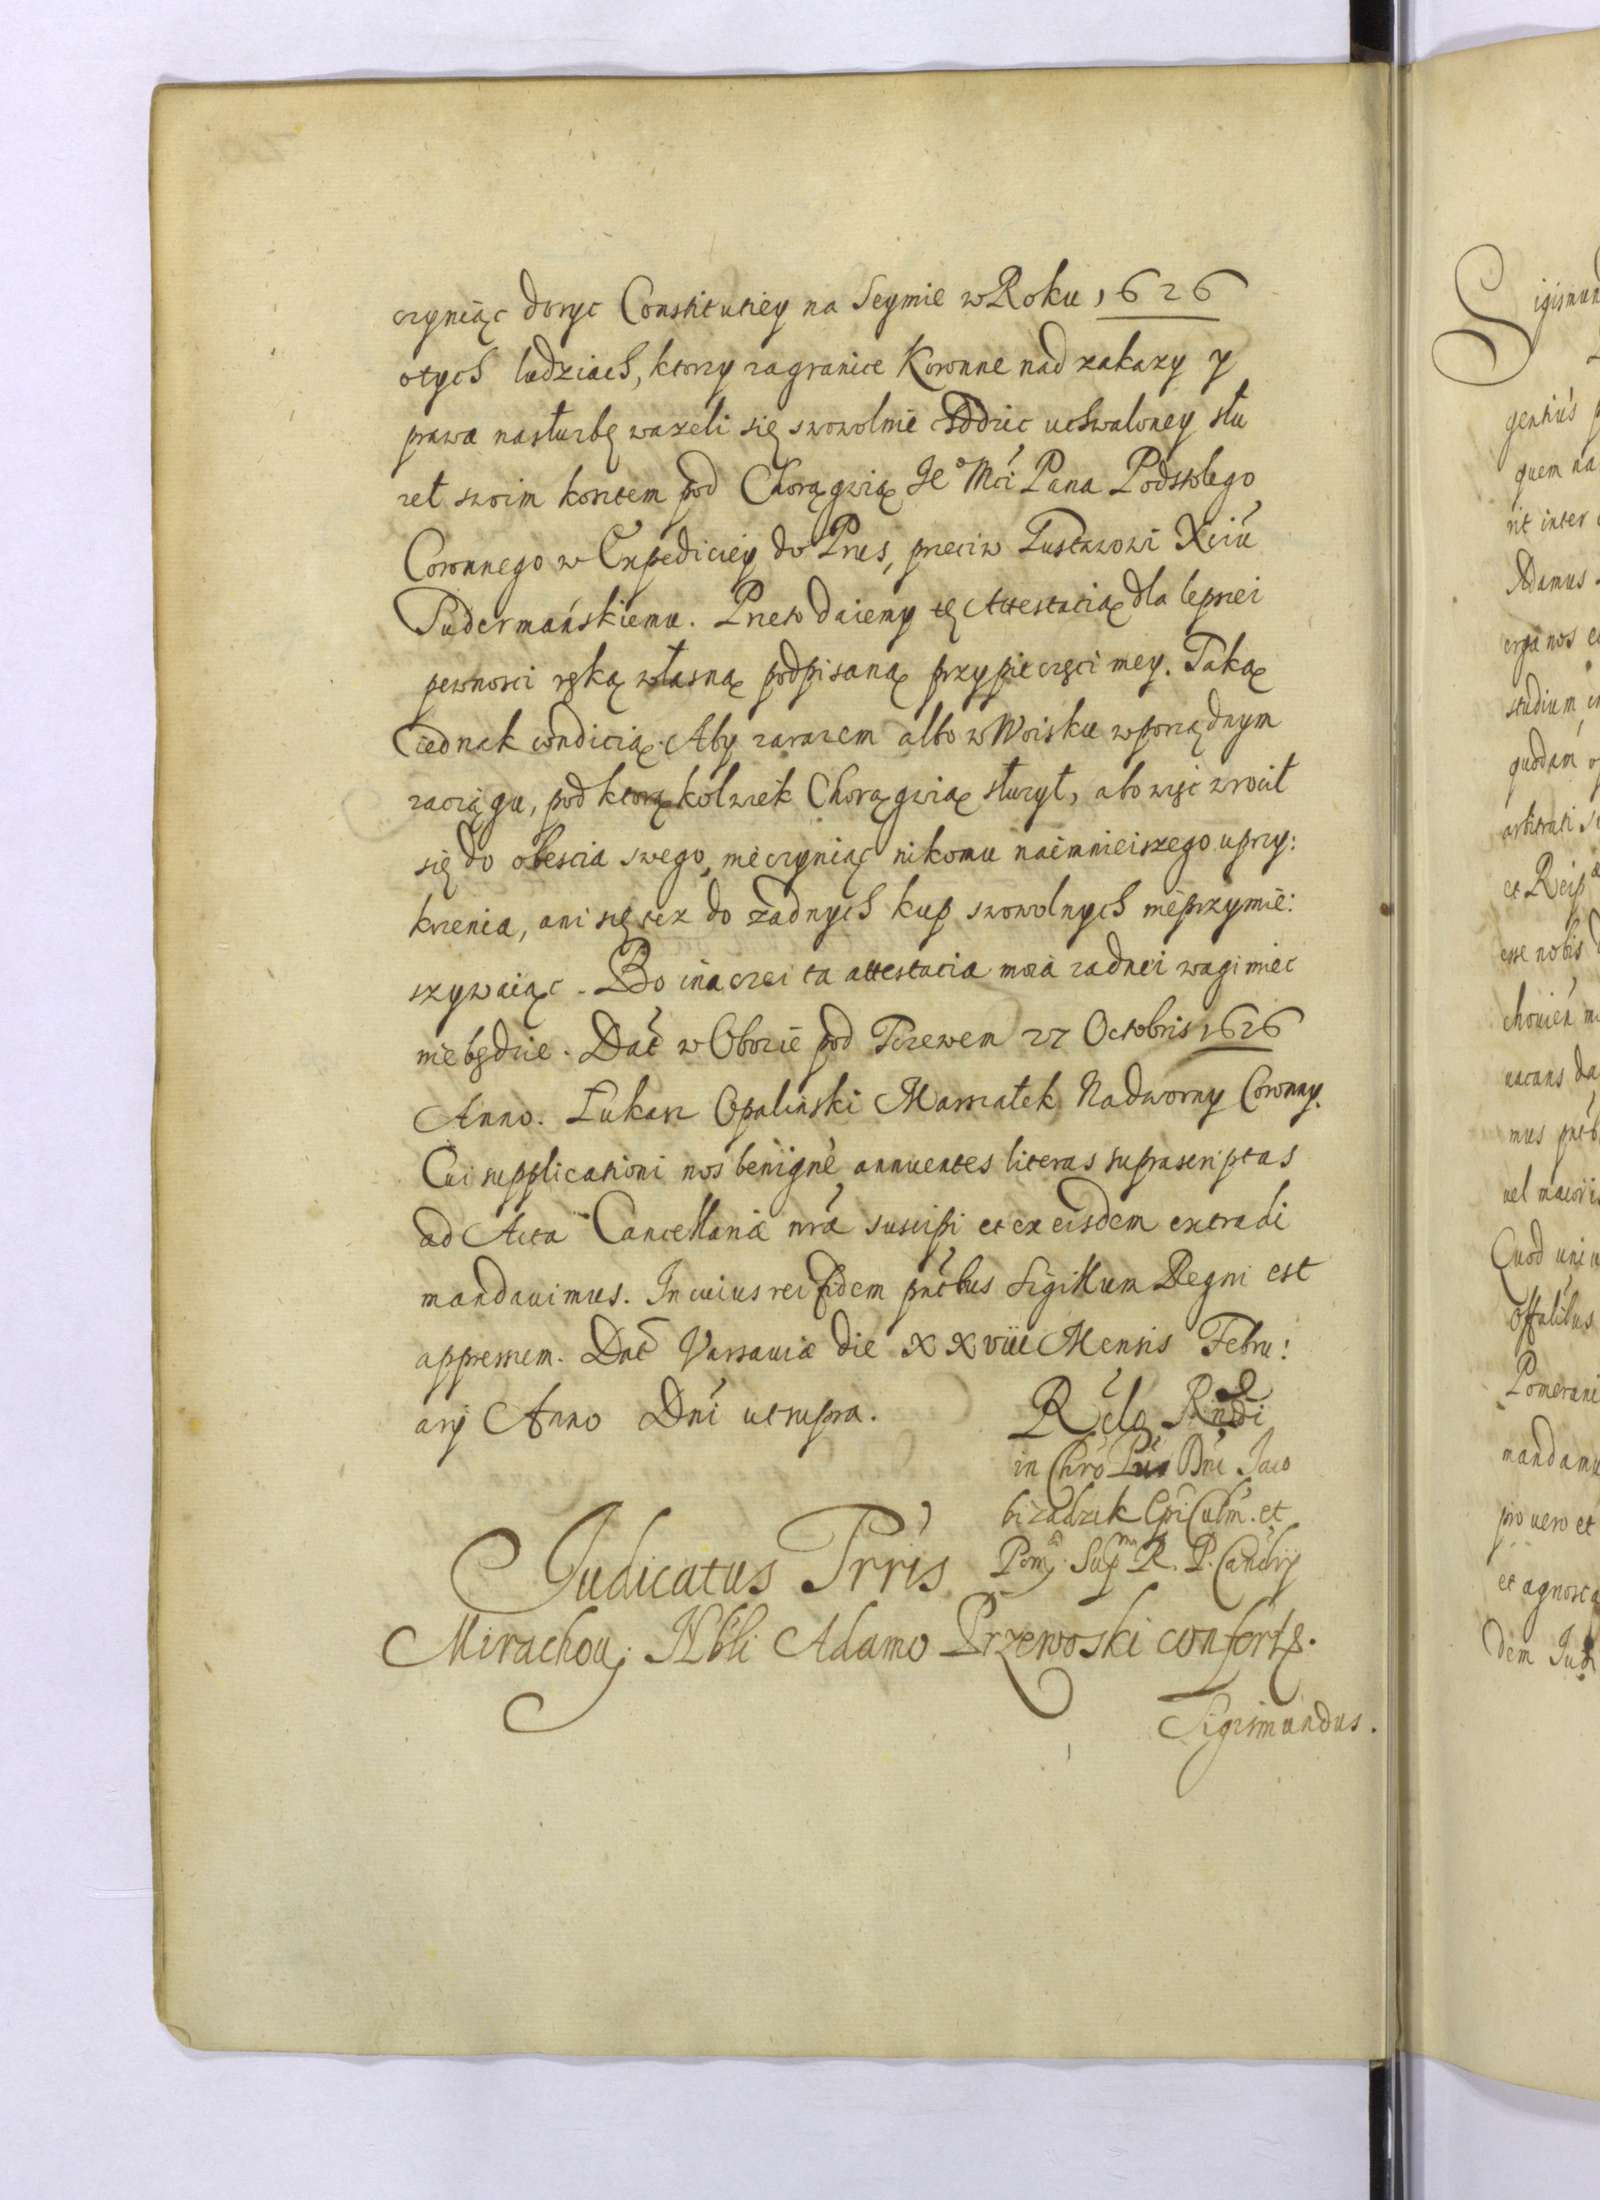 czyniąc dosyc Constitutiey na Seymie w Roku 1626
o tych ludziach, ktorzy za granice Koronne nad zakazy y
prawa na służbę ważeli się swowolnie chodzic uchwaloney słu
zeł swoim kosztem pod Chorągwią Je° Mći Pana Podstolego
Coronnego w Expediciey do Prus, przeciw Gustawowi Xciu
Sudermańskiemu. Przeto daiemy tę Attestacią dla lepszei
pewnosci ręką własną podpisaną przy pieczęci mey. Taką
iednak condicią. Aby zarazem albo w Woisku w porządnym
zaciągu, pod ktorąkolwiek Chorągwią służył, abo więc wrocił
się do obescia swego, nie czyniąc nikomu naimnieiszego uprzy:
krzenia, ani się tez do żadnych kup swowolnych nieprzymie:
szywaiąc. Bo inaczei ta attestacia moia zadnei wagi miec
nie będzie. Dat w Obozie pod Tczewem 27 Octobris 1626
Anno. Łukasz Opalinski Marszałek Nadworny Coronny.
Cui supplicationi nos benignè annuentes literas suprascriptas
ad Acta Cancellariæ nrǽ suscipi et ex eisdem extradi
mandauimus. In cuius rei fidem pntibus Sigillum Regni est
appressum. Dat Varsauiæ die XXviii Mensis Febru:
arij Anno Dni ut supra.
Rělo Rndi
in Chro Pris Dni Jaco
bi Zadzik Epi Culm. et
Pom; Supmi R. P. Cancrij
Judicatus Trris
Mirachou; Nbli Adamo Przewoski confertr.
Sigismundus.
Sigismun
gentiùs p
quem na
rit inter
Adamus
erga nos e
studium
quodam
arbitrati
et Reipæ
esse nobis
chouien
uacans da
mus pntb
uel maioris
Quod uni
offalibus
Pomerani
mandamu
pro uero et
et agnosca
dem Jud